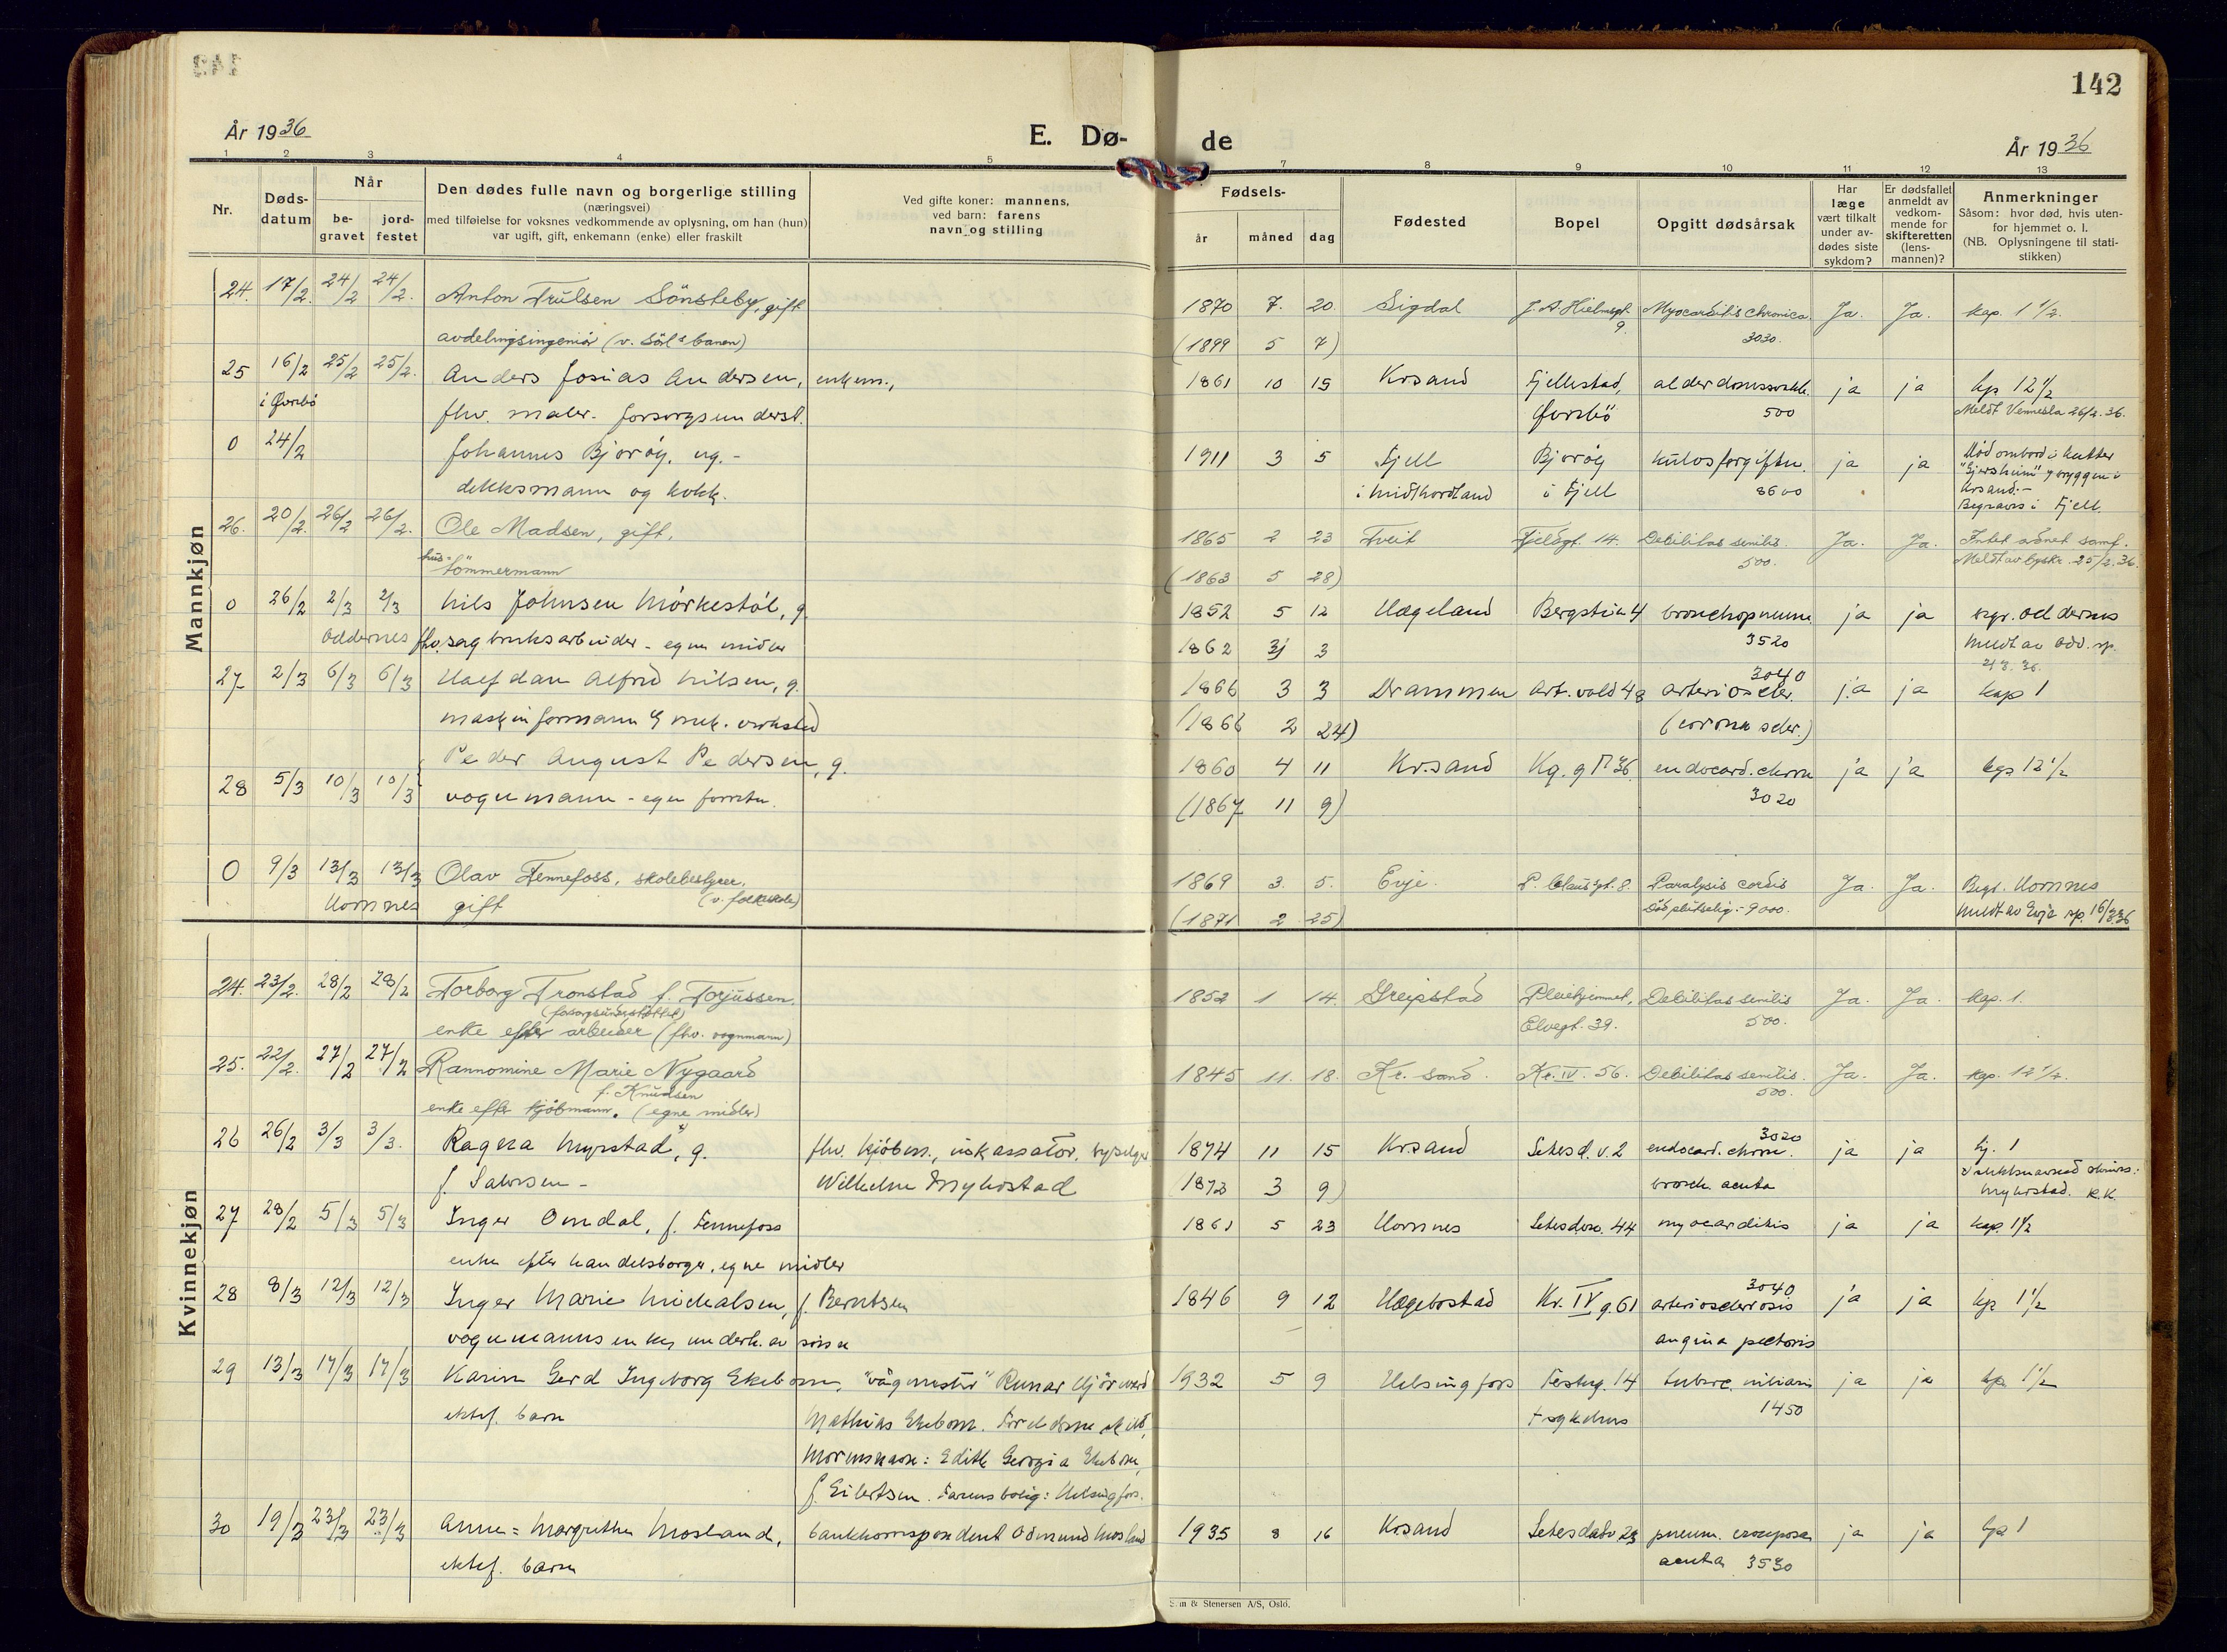 142
År 1936
E. Dø- de
År 1936
1 2 3 4 5 7 8 9 10 11 12 13
Nr.
Døds-
datum
Når
be-
gravet
jord-
festet
Den dødes fulle navn og borgerlige stilling
(næringsvei)
med tilføielse for voksnes vedkommende av oplysning, om han (hun)
var ugift, gift, enkemann (enke) eller fraskilt
Ved gifte koner: mannens,
ved barn: farens
navn og stilling
Fødsels-
år måned dag
Fødested
Bopel
Opgitt dødsårsak
Har
læge
vært tilkalt
under av-
dødes siste
sykdom?
Er dødsfallet
anmeldt av
vedkom-
mende for
skifteretten
(lens-
mannen)?
Anmerkninger
Såsom: hvor død, hvis uten-
for hjemmet o. l.
(NB. Oplysningene til stati-
stikken)
Mannkjøn
24. 17/2. 24/2 24/2. Anton Trulsen Sönsteby, gift 1870 7. 20. Sigdal J. A. Hielmsgt. 9. Myocarditis chronica. Ja. Ja. kap. 1 1/2.
avdelingsingeniör (v. Sörl.sbanen) (1899 5 7) 3030.
25 16/2 25/2 25/2. Anders Josias Andersen, enkem., 1861 10 15 Krsand Fjellestad, ja ja kp 12 1/2
i Øvrebö fhv. maler. forsorgsunderst. Øvrebö 500 Meldt Vennesla 26/2. 36.
0 24/2 Johannes Bjoröy, ug. - 1911 3 5 Fjell Bjoröy kulosforgiftn. ja ja Död ombord i kutter
dekksmann og kokk. i Midthordland i Fjell 8600 bryggen i
Krsand. -
Begraves i Fjell.
26. 20/2. 26/2 26/2. Ole Madsen, gift, 1865 2 23 Tveit 14. Debilitas senilis. Ja. Ja. Intet åbnet samf.
hus-tömmermann (1863 5 28) 500. Meldt av byskr. 25/2. 36.
0 26/2 2/3 2/3 Nils Johnsen Mörkestöl, g. 1852 5 12 Hægeland Bergstien 4 bronchopneum. ja ja Oddernes
Oddernes fhv. sagbruksarbeider - egne midler 1862 3 3520 Meldt av Odd. sp.
27 2/3 6/3 6/3 Halfdan Alfred Nilsen, g. 1866 3 3 Drammen 3040 arterioscler. ja ja kap 1
maskinformann mek. verksted (1866 2 24) (corona scler.)
28 5/3 10/3 10/3 Peder August Pedersen, g. 1860 4 11 Kr.sand 36. endocard. chron ja ja kap 12 1/2
vognmann - egen forretn. (1867 11 9) 3020
0 9/3 13/3 13/3 Olav Fennefoss, skolebestyrer. 1869 3. 5. Evje. P. Clausgt. 8. Paralysis cordis Ja. Ja. Begr. Hornnes
Hornnes gift (v. folkeskole) (1871 2 25) Död plutselig. - 9000. Meldt av Evje sp. 16/3.36
Kvinnekjøn
24. 23/2. 28/2 28/2 Torborg Tronstad f. Torjussen. 1852 1 14. Greipstad Pleiehjemmet, Debilitas senilis Ja. Ja. kap. 1.
(forsorgsunderstöttet)
enke efter arbeider (fhv. vognmann) Elvegt. 39. 500.
25. 22/2. 27/2 27/2 Rannomine Marie Nygaard 1845 11. 18. Kr. sand. Kr. IV. 56. Debilitas senilis. Ja. Ja. kap. 12 1/2.
f. Knudsen
enke efter kjöbmann. (egne midler) 500.
26 26/2 3/3 3/3. Ragna Myrstad, g. fhv. kjöbm., inkassator, 1874 11 15 Krsand Setesd. v. 2 3020 endocard. chron. ja ja kp. 1
f. Salvesen - Wilhelm Myhrstad 1873 3 9) bronch. acuta
Myhrstad. K.K.
27 28/2 5/3 5/3 Inger Omdal, f. Fennefoss 1861 5 23 Hornnes Setesdsv. 44 myocarditis ja ja kap. 1 1/2
enke efter handelsborger, egne midler
28 8/3 12/3 12/3 Inger Marie Mickalsen, f. Berntsen 1846 9 12 Hægebostad Kr. IV g. 61 3040 arteriosclerosis ja ja kp 1 1/2
vognmanns enke, underh. av angina pectoris
29 13/3 17/3 17/3 Karin Gerd Ingeborg Ekebom, "vågmester" Runar Hjörvard 1932 5 9 Helsingfors Festng. 14 tuberc. miliaris ja ja kp. 1 1/2
ektef. barn Mathias Ekebom. Foreldrene skilt, + sykehus 1450
Morens navn: Edith Georgia Ekebom,
f. Eilertsen. Farens bolig: Helsingfors.
30 19/3 23/3 23/3 Anne = Margrethe Mosland, bankkorrespondent Odmund Mosland 1935 8 16 Krsand Setesdalsv 23 pneum. crouposa ja ja kp 1
ektef. barn acuta 3530
& Stenersen A/S, Oslo.